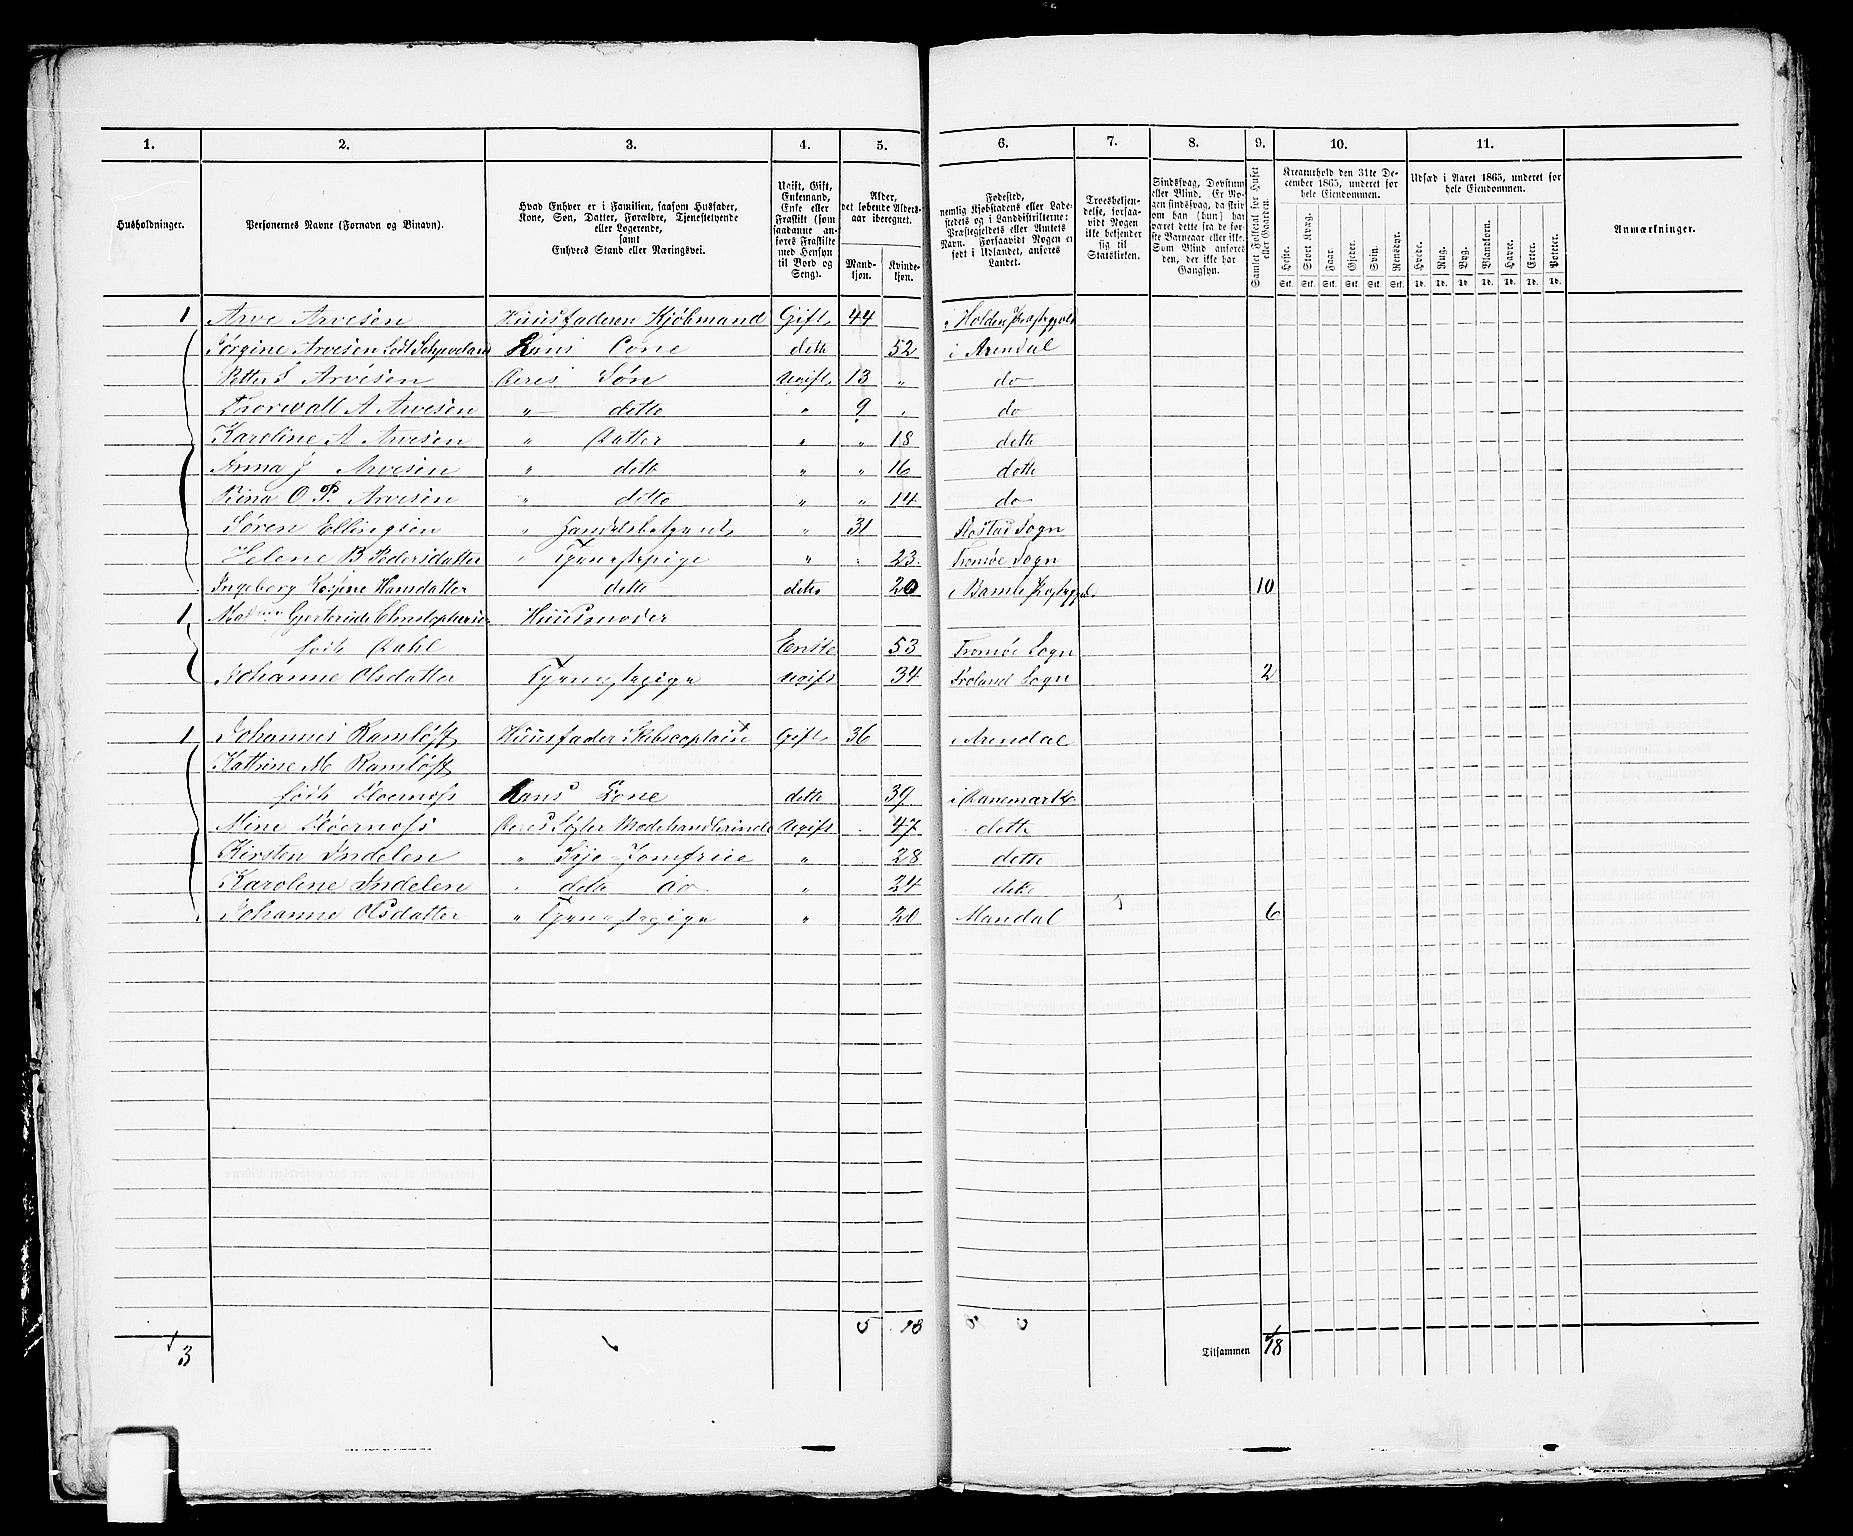 1. 2. 3. 4. 5. 6. 7. 8. 9. 10. 11.
Husholdninger.
Personernes Navne (Fornavn og Binavn).
Hvad Enhver er i Familien, saasom Husfader,
Kone, Søn, Datter, Forældre, Tjenestetyende
eller Logerende,
samt
Enhvers Stand eller Næringsvei.
Ugift, Gift,
Enkemand,
Enke eller
Fraskilt (som
saadanne an-
føres Fraskilte
med Hensyn
til Bord og
Seng).
Alder,
det løbende Alders-
aar iberegnet.
Mand-
kjøn.
Kvinde-
kjøn.
Fødested,
nemlig Kjøbstadens eller Lade-
stedets og i Landdistrikterne:
Præstegjeldets eller Amtets
Navn. Forsaavidt Nogen er
født i Udlandet, anføres
Landet.
Troesbekjen-
delse, forsaa-
vidt Nogen
ikke bekjender
sig til
Statskirken.
Sindssvag, Døvstum
eller Blind. Er No-
gen sindssvag, da skriv
om han (hun) har
været dette fra de før-
ste Barneaar eller ikke.
Som Blind anføres
den, der ikke har
Gangsyn.
Samlet Folketal for Huset
eller Gaarden.
Kreaturhold den 31te De-
cember 1865, underet for
hele Eiendommen.
Heste. Stort Kvæg. Faar. Gjeder. Svin. Rensdyr.
Stk. Stk. Stk. Stk. Stk. Stk.
Udsæd i Aaret 1865, underet for
hele Eiendommen.
Hvede. Rug. Byg. Blandkorn. Havre. Erter. Poteter.
Td. Td. Td. Td. Td. Td. Td.
Anmærkninger.
1 Arve Arvesen Huusfaderen Kjøbmand Gift 44 i Holden Præstegjeld
Sørgine Arvesen født Kone dette 52 i Arendal
Petter S Arvesen Deres Søn Ugift 13 „ do
Thorwall A Arvesen „ detto „ 9 „ do
Karoline A Arvesen „ Datter „ „ 18 dette
Anna J Arvesen „ dett „ „ 16 dette
Rina O P. Arvesen „ detto „ „ 14 do
Søren Ellingsen „ „ 31 Sogn
Helene B Pedersdatter „ Tjenestepige „ 23 Tromøe Sogn
Ingeborg Hansdatter dette dette 20 i Bamle 10
1 Gjertrude Huusmoder
født Dahl Enke 53 Tromøe Sogn
Johanne Olsdatter Tjenestepige Ugift 34 Froland Sogn 2
1 Johannes Ramløff Huusfader Skibscaptain Gift 36 i Arendal
Kathrine M Ramløff
født Hans Kone dette 39 i Danemark
Mine Deres Søster Modehandlerinde Ugift 47 dette
Kirsten Indelen „ Sye-Jomfrue „ 28 dette
Karoline Indelen „ dette do „ 24 dette
Johanne Olsdatter „ Tjenestepige „ 20 Mandal 6
3 5 Tilsammen 18